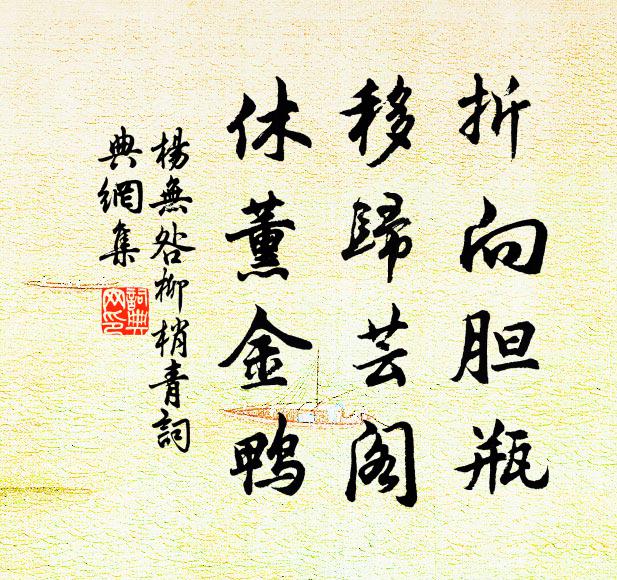 折向胆瓶
移歸芸閣
休薰金鴨
楊無咎柳梢青詞
典網集
詞典網印